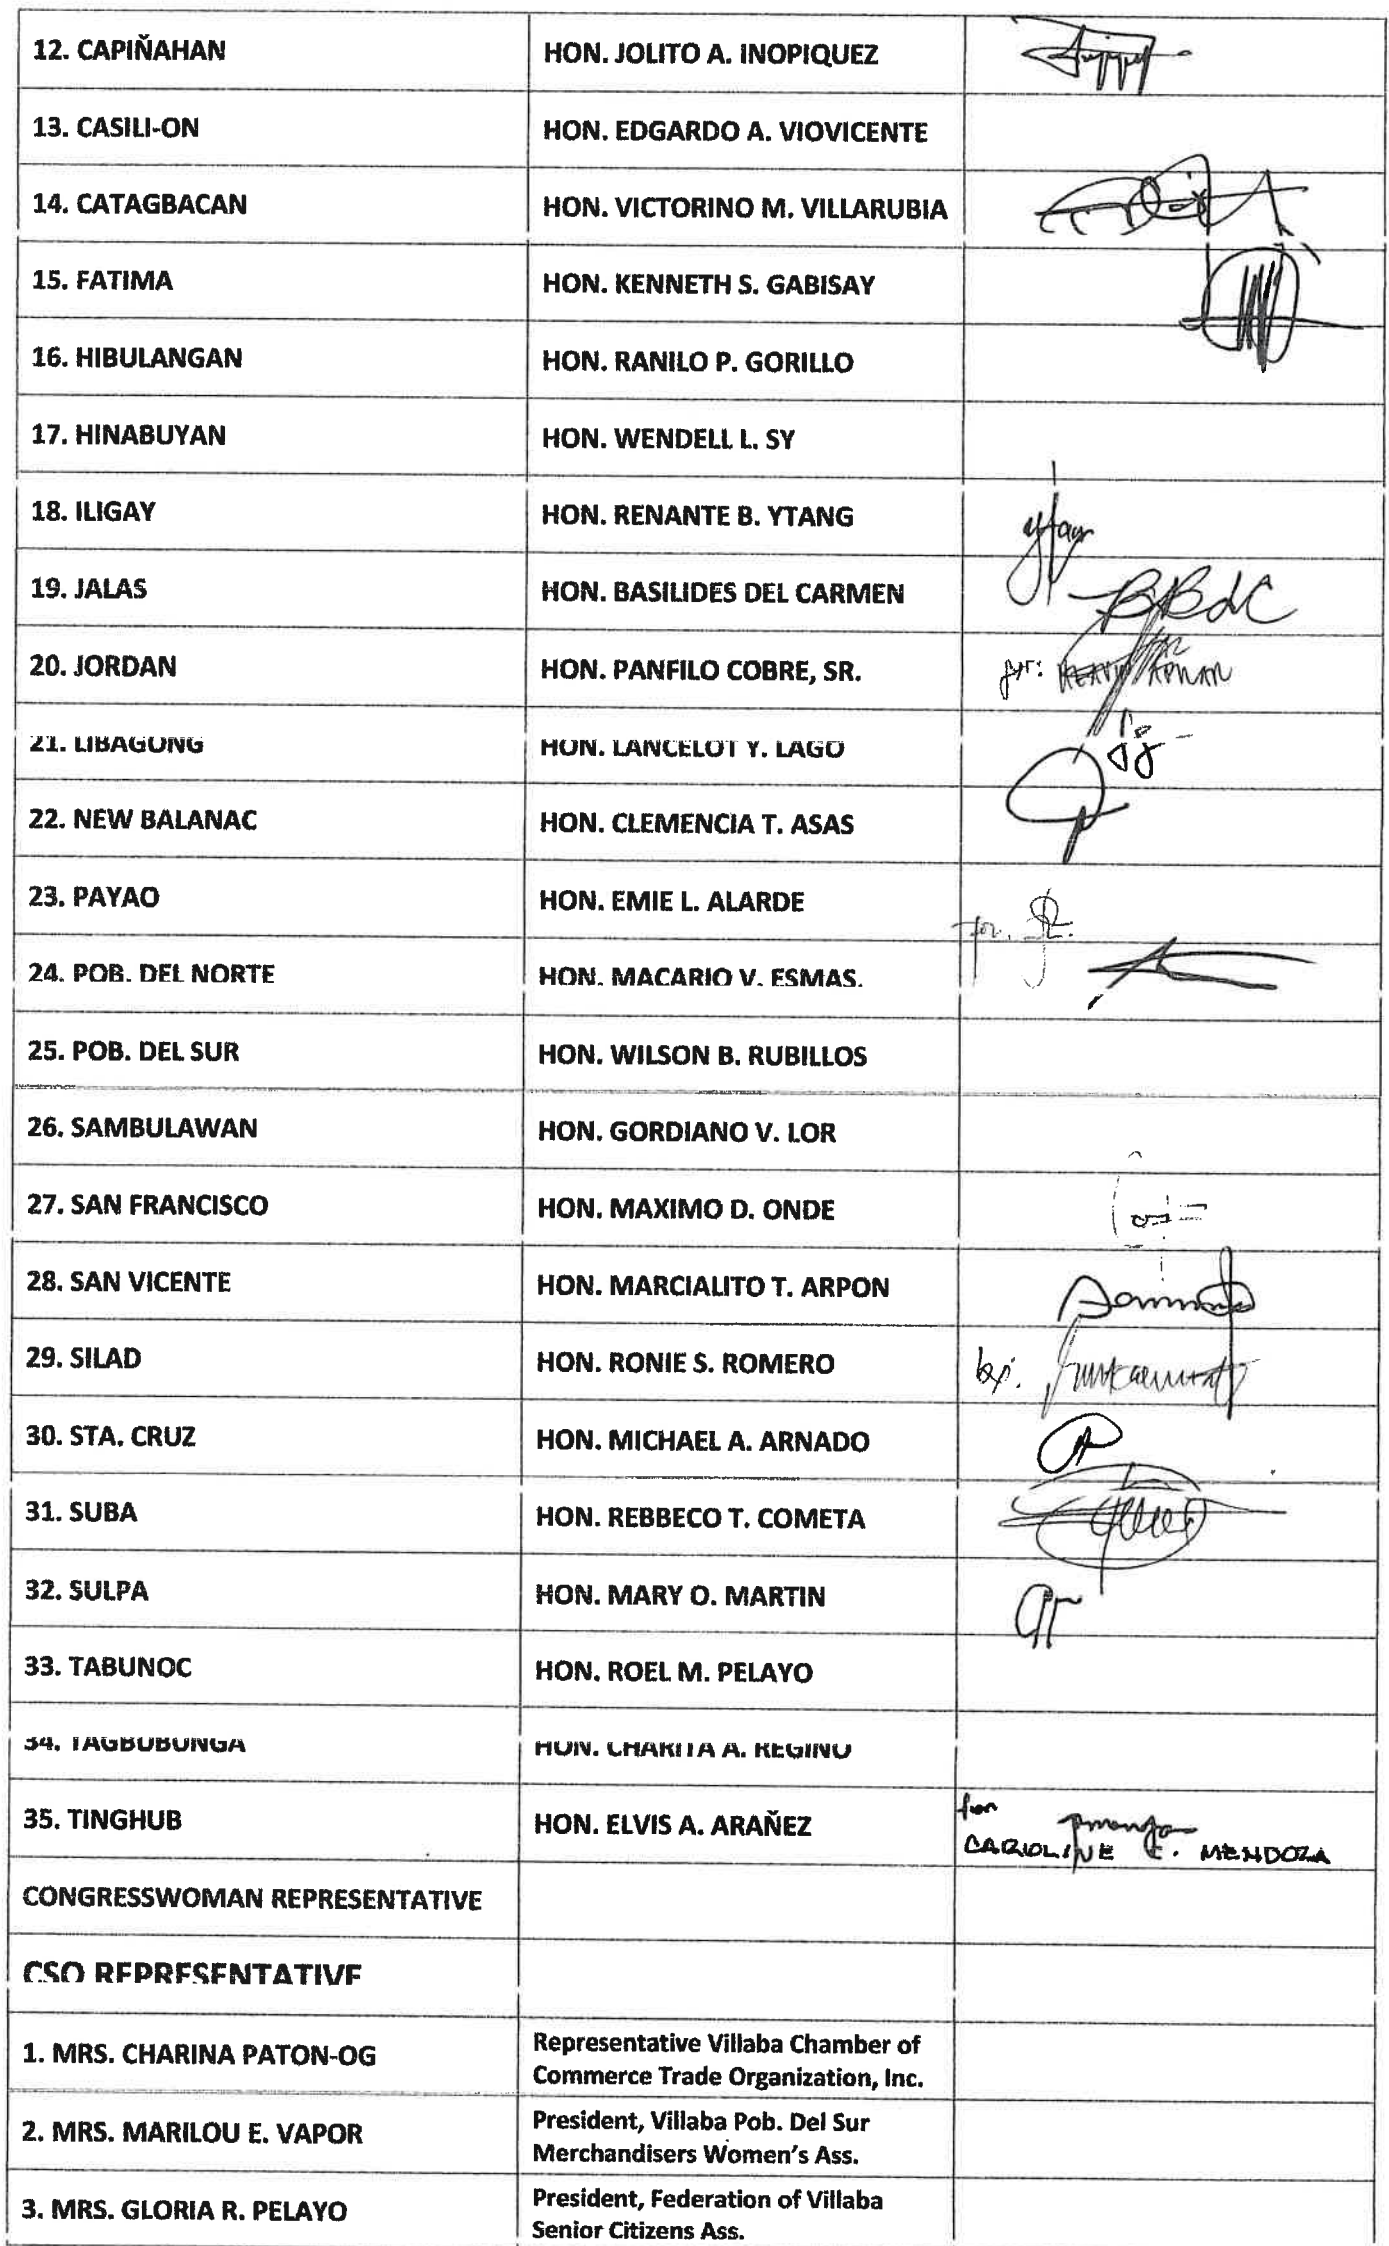 12. CAPIÑAHAN HON. JOLITO A. INOPIQUEZ
13. CASILI-ON HON. EDGARDO A. VIOVICENTE
14. CATAGBACAN HON. VICTORINO M. VILLARUBIA
15. FATIMA HON. KENNETH S. GABISAY
16. HIBULANGAN HON. RANILO P. GORILLO
17. HINABUYAN HON. WENDELL L. SY
18. ILIGAY HON. RENANTE B. YTANG
19. JALAS HON. BASILIDES DEL CARMEN BBdC
20. JORDAN HON. PANFILO COBRE, SR. for:
21. LIBAGONG HON. LANCELOT Y. LAGO
22. NEW BALANAC HON. CLEMENCIA T. ASAS
23. PAYAO HON. EMIE L. ALARDE for.
24. POB. DEL NORTE HON. MACARIO V. ESMAS.
25. POB. DEL SUR HON. WILSON B. RUBILLOS
26. SAMBULAWAN HON. GORDIANO V. LOR
27. SAN FRANCISCO HON. MAXIMO D. ONDE
28. SAN VICENTE HON. MARCIALITO T. ARPON
29. SILAD HON. RONIE S. ROMERO
30. STA. CRUZ HON. MICHAEL A. ARNADO
31. SUBA HON. REBBECO T. COMETA
32. SULPA HON. MARY O. MARTIN
33. TABUNOC HON. ROEL M. PELAYO
34. TAGBUBUNGA HON. CHARITA A. REGINO
35. TINGHUB HON. ELVIS A. ARAÑEZ for
CAROLINE C. MENDOZA
CONGRESSWOMAN REPRESENTATIVE
CSO REPRESENTATIVE
1. MRS. CHARINA PATON-OG Representative Villaba Chamber of
Commerce Trade Organization, Inc.
2. MRS. MARILOU E. VAPOR President, Villaba Pob. Del Sur
Merchandisers Women's Ass.
3. MRS. GLORIA R. PELAYO President, Federation of Villaba
Senior Citizens Ass.